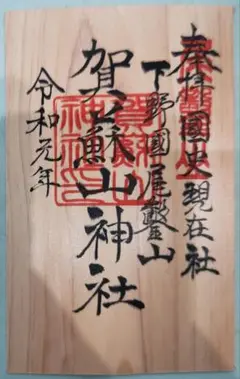 奉拝國史現在社
下野國尾鑿山
賀蘇山神社
令和元年